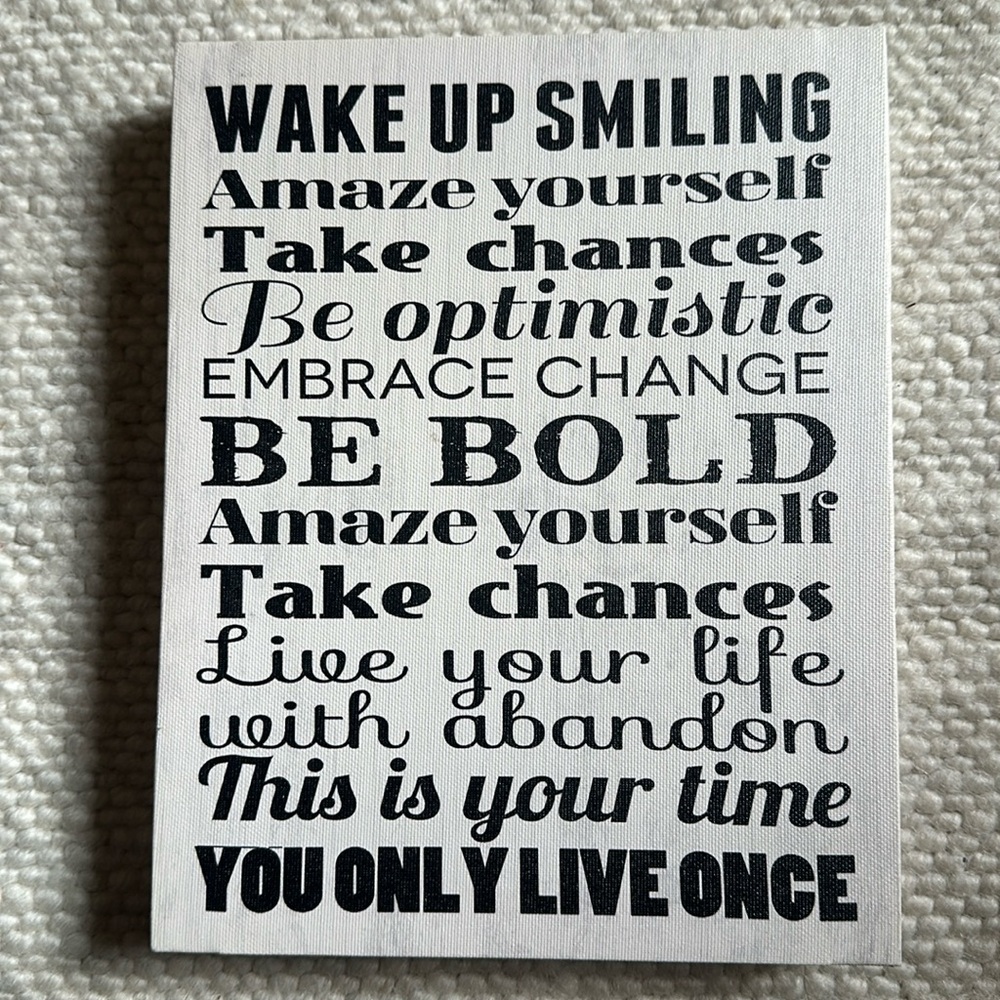 WAKE UP SMILING
Amaze yourself
Take chances
Be optimistic
EMBRACE CHANGE
BE BOLD
Amaze yourself
Take chances
Live your life
with abandon
This is your time
YOU ONLY LIVE ONCE